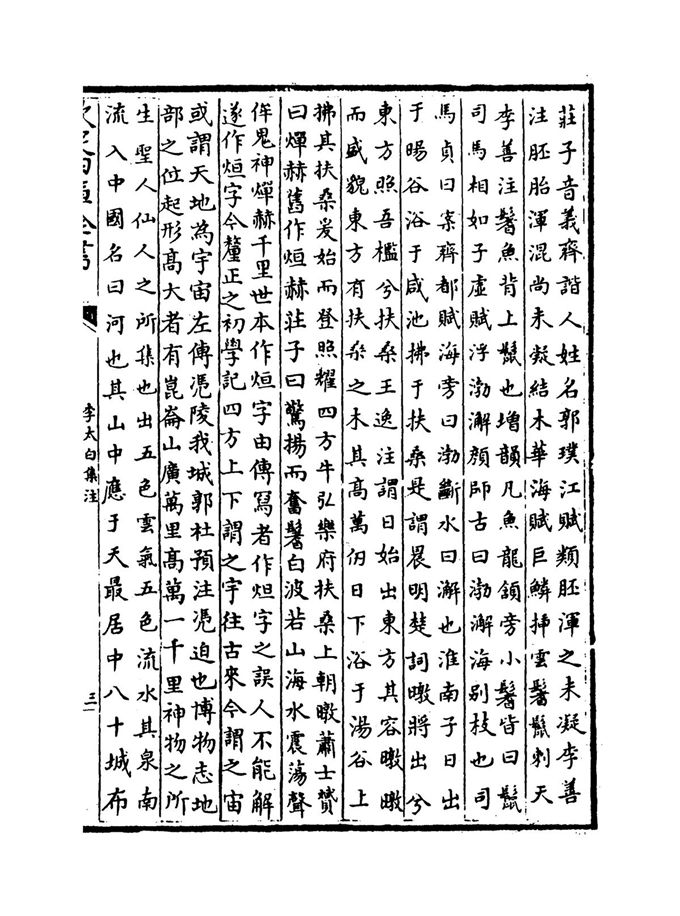 莊子音義齊諧人姓名郭璞江賦類胚渾之未凝李善
注胚胎渾混尚未凝結木華海賦巨鱗揷雲鬐鬛刺天
李善注鬐魚背上鬛也增韻凡魚龍頷旁小鬐皆曰鬛
司馬相如子虛賦浮渤澥顔師古曰渤澥海别枝也司
馬貞曰案齊都賦海旁曰渤斷水曰澥也淮南子日出
于暘谷浴于咸池拂于扶桑是謂晨明楚詞暾將出兮
東方照吾檻兮扶桑王逸注謂日始出東方其容暾暾
而盛貌東方有扶桑之木其髙萬仞日下浴于湯谷上
拂其扶桑爰始而登照耀四方牛弘樂府扶桑上朝暾蕭士贇
曰燀赫舊作烜赫莊子曰驚揚而奮鬐白波若山海水震蕩聲
侔鬼神燀赫千里世本作烜字由傳冩者作烜字之誤人不能解
遂作烜字今釐正之初學記四方上下謂之宇往古來今謂之宙
或謂天地為宇宙左傳馮陵我城郭杜預注馮迫也博物志地
部之位起形髙大者有崑崙山廣萬里髙萬一千里神物之所
生聖人仙人之所集也出五色雲氣五色流水其泉南
流入中國名曰河也其山中應于天最居中八十城布
李太白集注
三